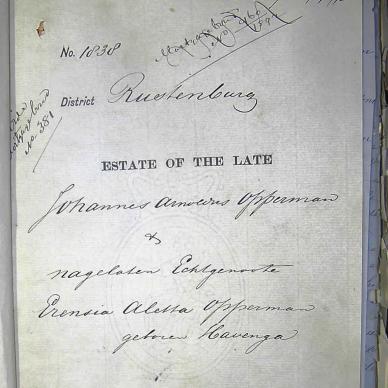 No. 1838
District Rustenburg
No. 381
ESTATE OF THE LATE
Johannes Arnoldus Opperman
&
nagelaten Echtgenoote
Erensia Aletta Opperman
geboren Havenga